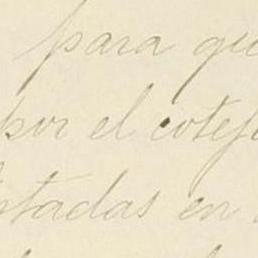 para qu
por el cotej
tadas en